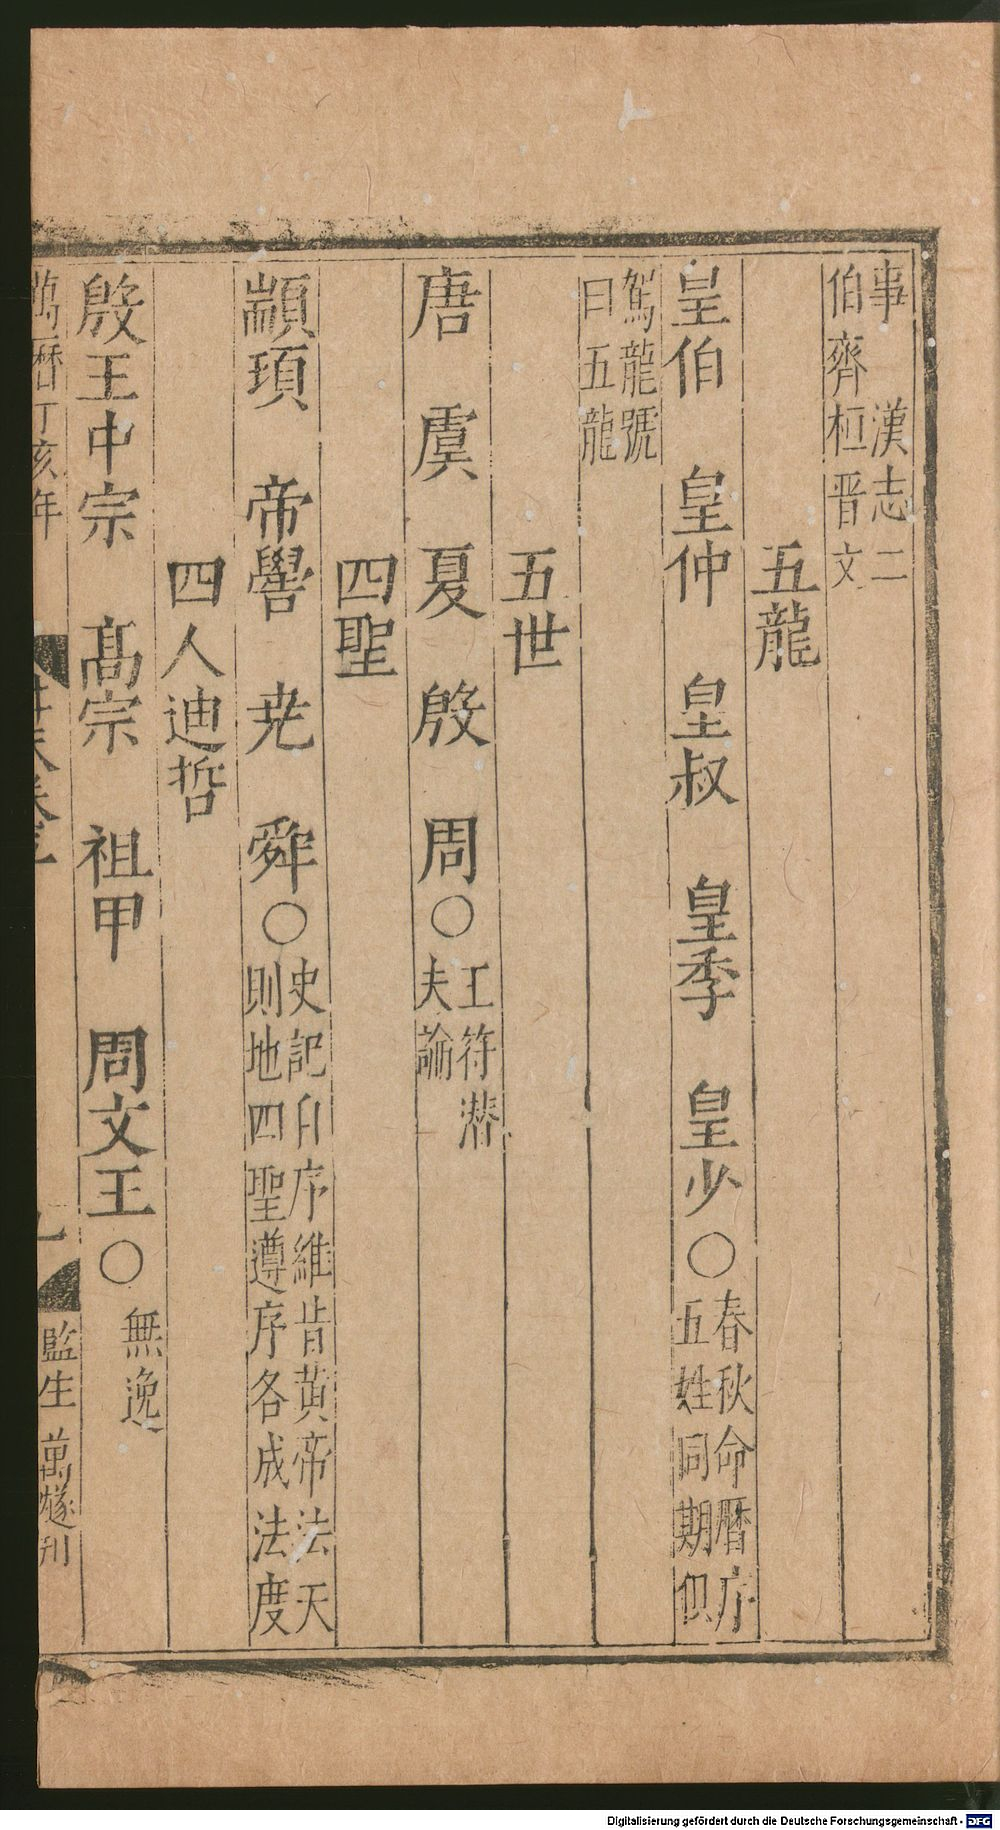 事　漢志二
伯齊桓晋文
五龍
皇伯　皇仲　皇叔　皇季　皇少○春秋命暦序
五姓同期俱
駕龍號
曰五龍
五世
唐　虞　夏　殷　周○王符潜
夫論
四聖
顓頊　帝嚳　尭　舜○史記自序維昔黄帝法天
則地四聖遵序各成法度
四人迪哲
殷王中宗　髙宗　祖甲　周文王○無逸
萬暦丁亥年
監生萬燧刊
Digitalisierung gefördert durch die Deutsche Forschungsgemeinschaft - DFG